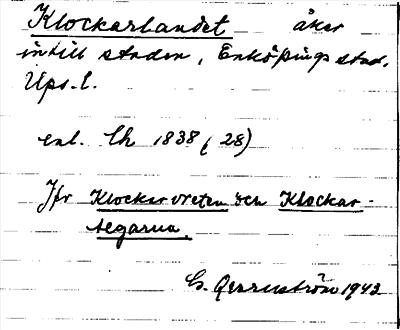 Klockarlandet åker
intill staden, Enköpings stad,
Ups. l.
enl. Ch 1838 (28)
Jfr Klockarvreten och Klockar-
tegarna.
G. 1942